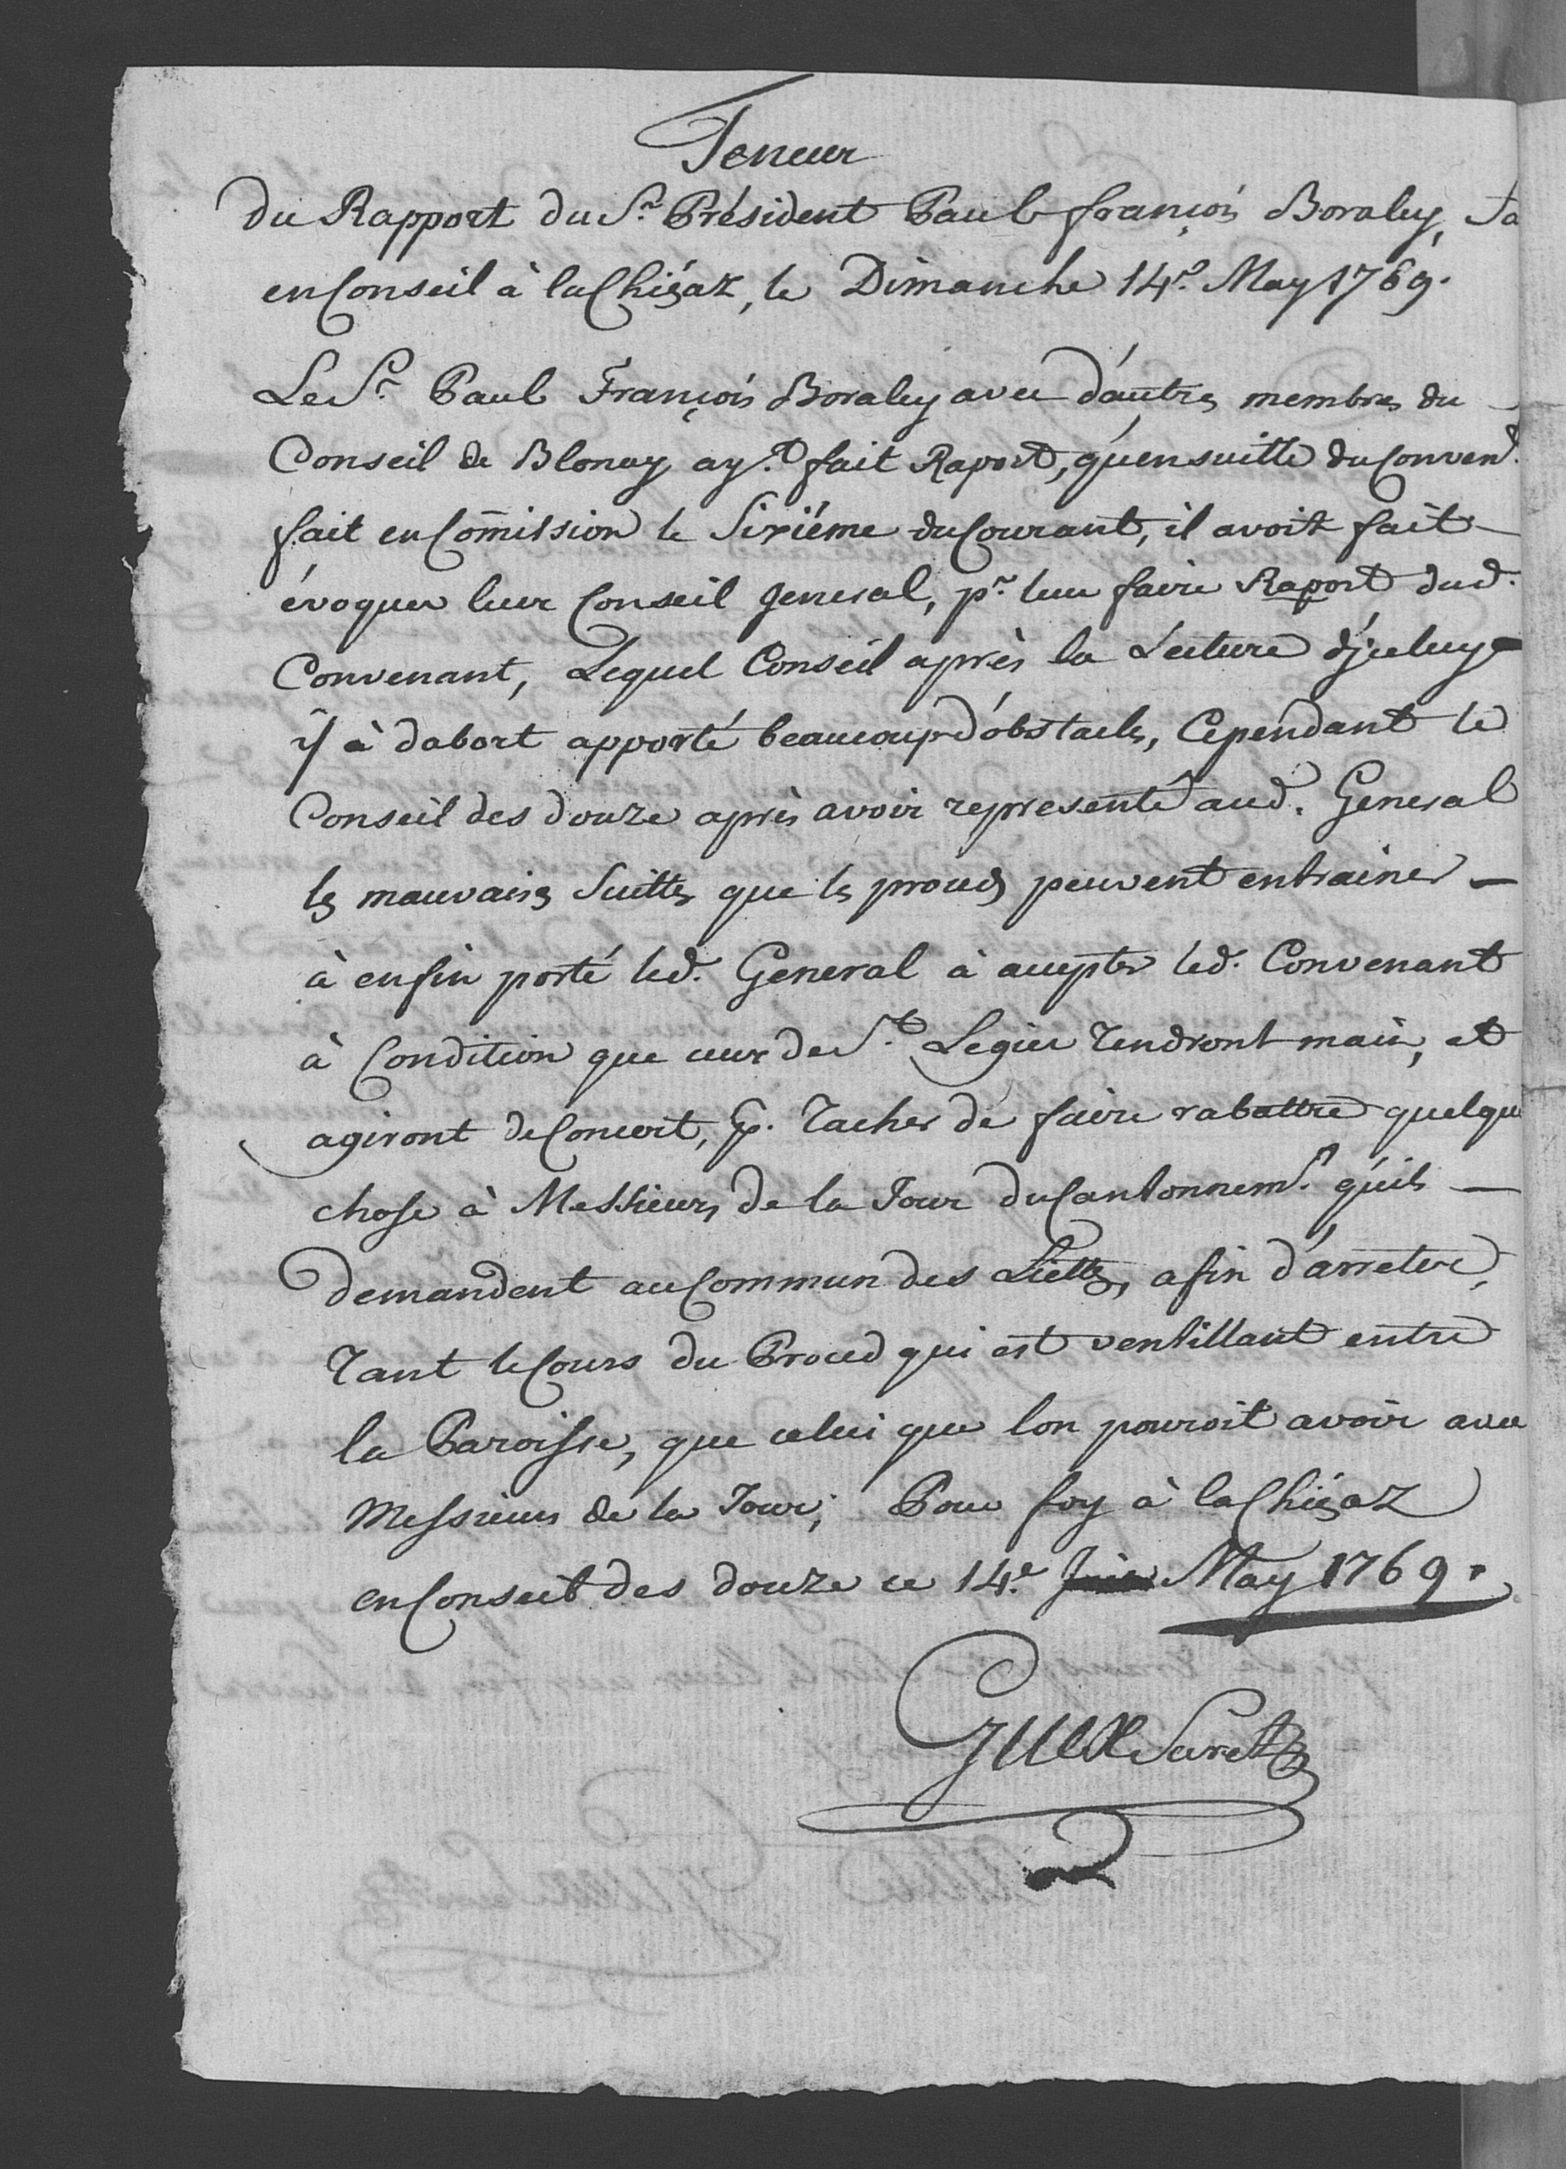 Teneur
du Rapport du S.r Président Paul françois Boraley,
en Conseil à la Chiésaz, le Dimanche 14.e May 1769.
Le S.r Paul François Boraley avec d'autres membres du
Conseil de Blonay ay.t fait Raport, qu'en suitte du Conven.t
fait en Com̃ission le Sixiéme du Courant, il avoit fait
évoquer leur Conseil general, p.r leur faire Raport dud.
Convenant, Lequel Conseil après la Lecture d'jceluy
ÿ à dabort apporté beaucoup d'obstacles, Cependant le
Conseil des douze après avoir representé aud. General
les mauvaises Suittes que les procés peuvent entrainer —
à enfin porté led. General à accepter led. Convenant
à Condition que ceux de S.t Legier Tendront main, et
agiront de Concert, p. Tacher de faire rabattre quelque
chose à Messieurs de la Tour du Cantonnem.t qu'ils —
demandent au Commun des Liettes, afin d'arreter,
Tant le Cours du Proced qui est ventillant entre
la Paroisse, que celui que lon pouroit avoir avec
Messieurs de la Tour; Pour foy à la Chiésaz
en Conseil des douze ce 14.e Juin May 1769.
Guex Secret.